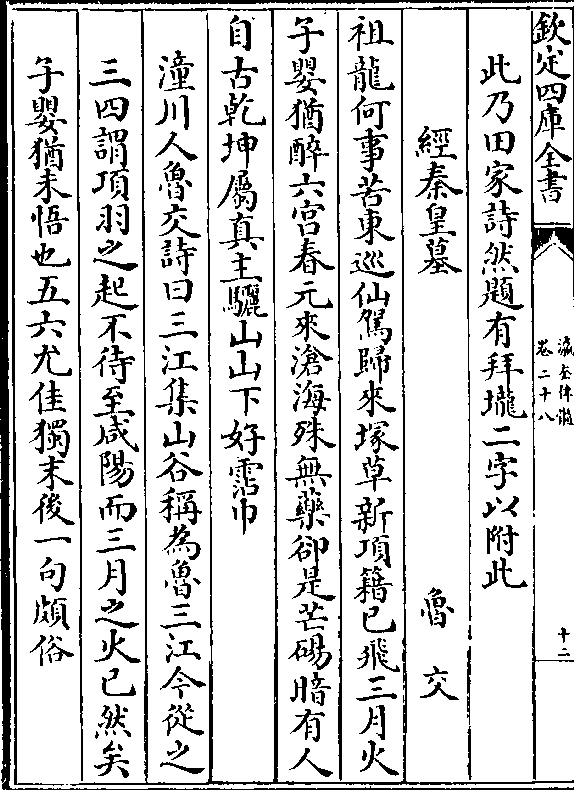 欽定四庫全書
瀛奎律髓
卷二十八
十二
此乃田家詩然題有拜壠二字以附此
經秦皇墓 魯交
祖龍何事苦東巡仙駕歸來塚草新項籍已飛三月火
子嬰猶醉六宫春元來滄海殊無藥卻是芒碭暗有人
自古乾坤屬真主驪山山下好霑巾
潼川人魯交詩曰三江集山谷稱為魯三江今從之
三四謂項羽之起不待至咸陽而三月之火已然矣
子嬰猶未悟也五六尤佳獨末後一句頗俗